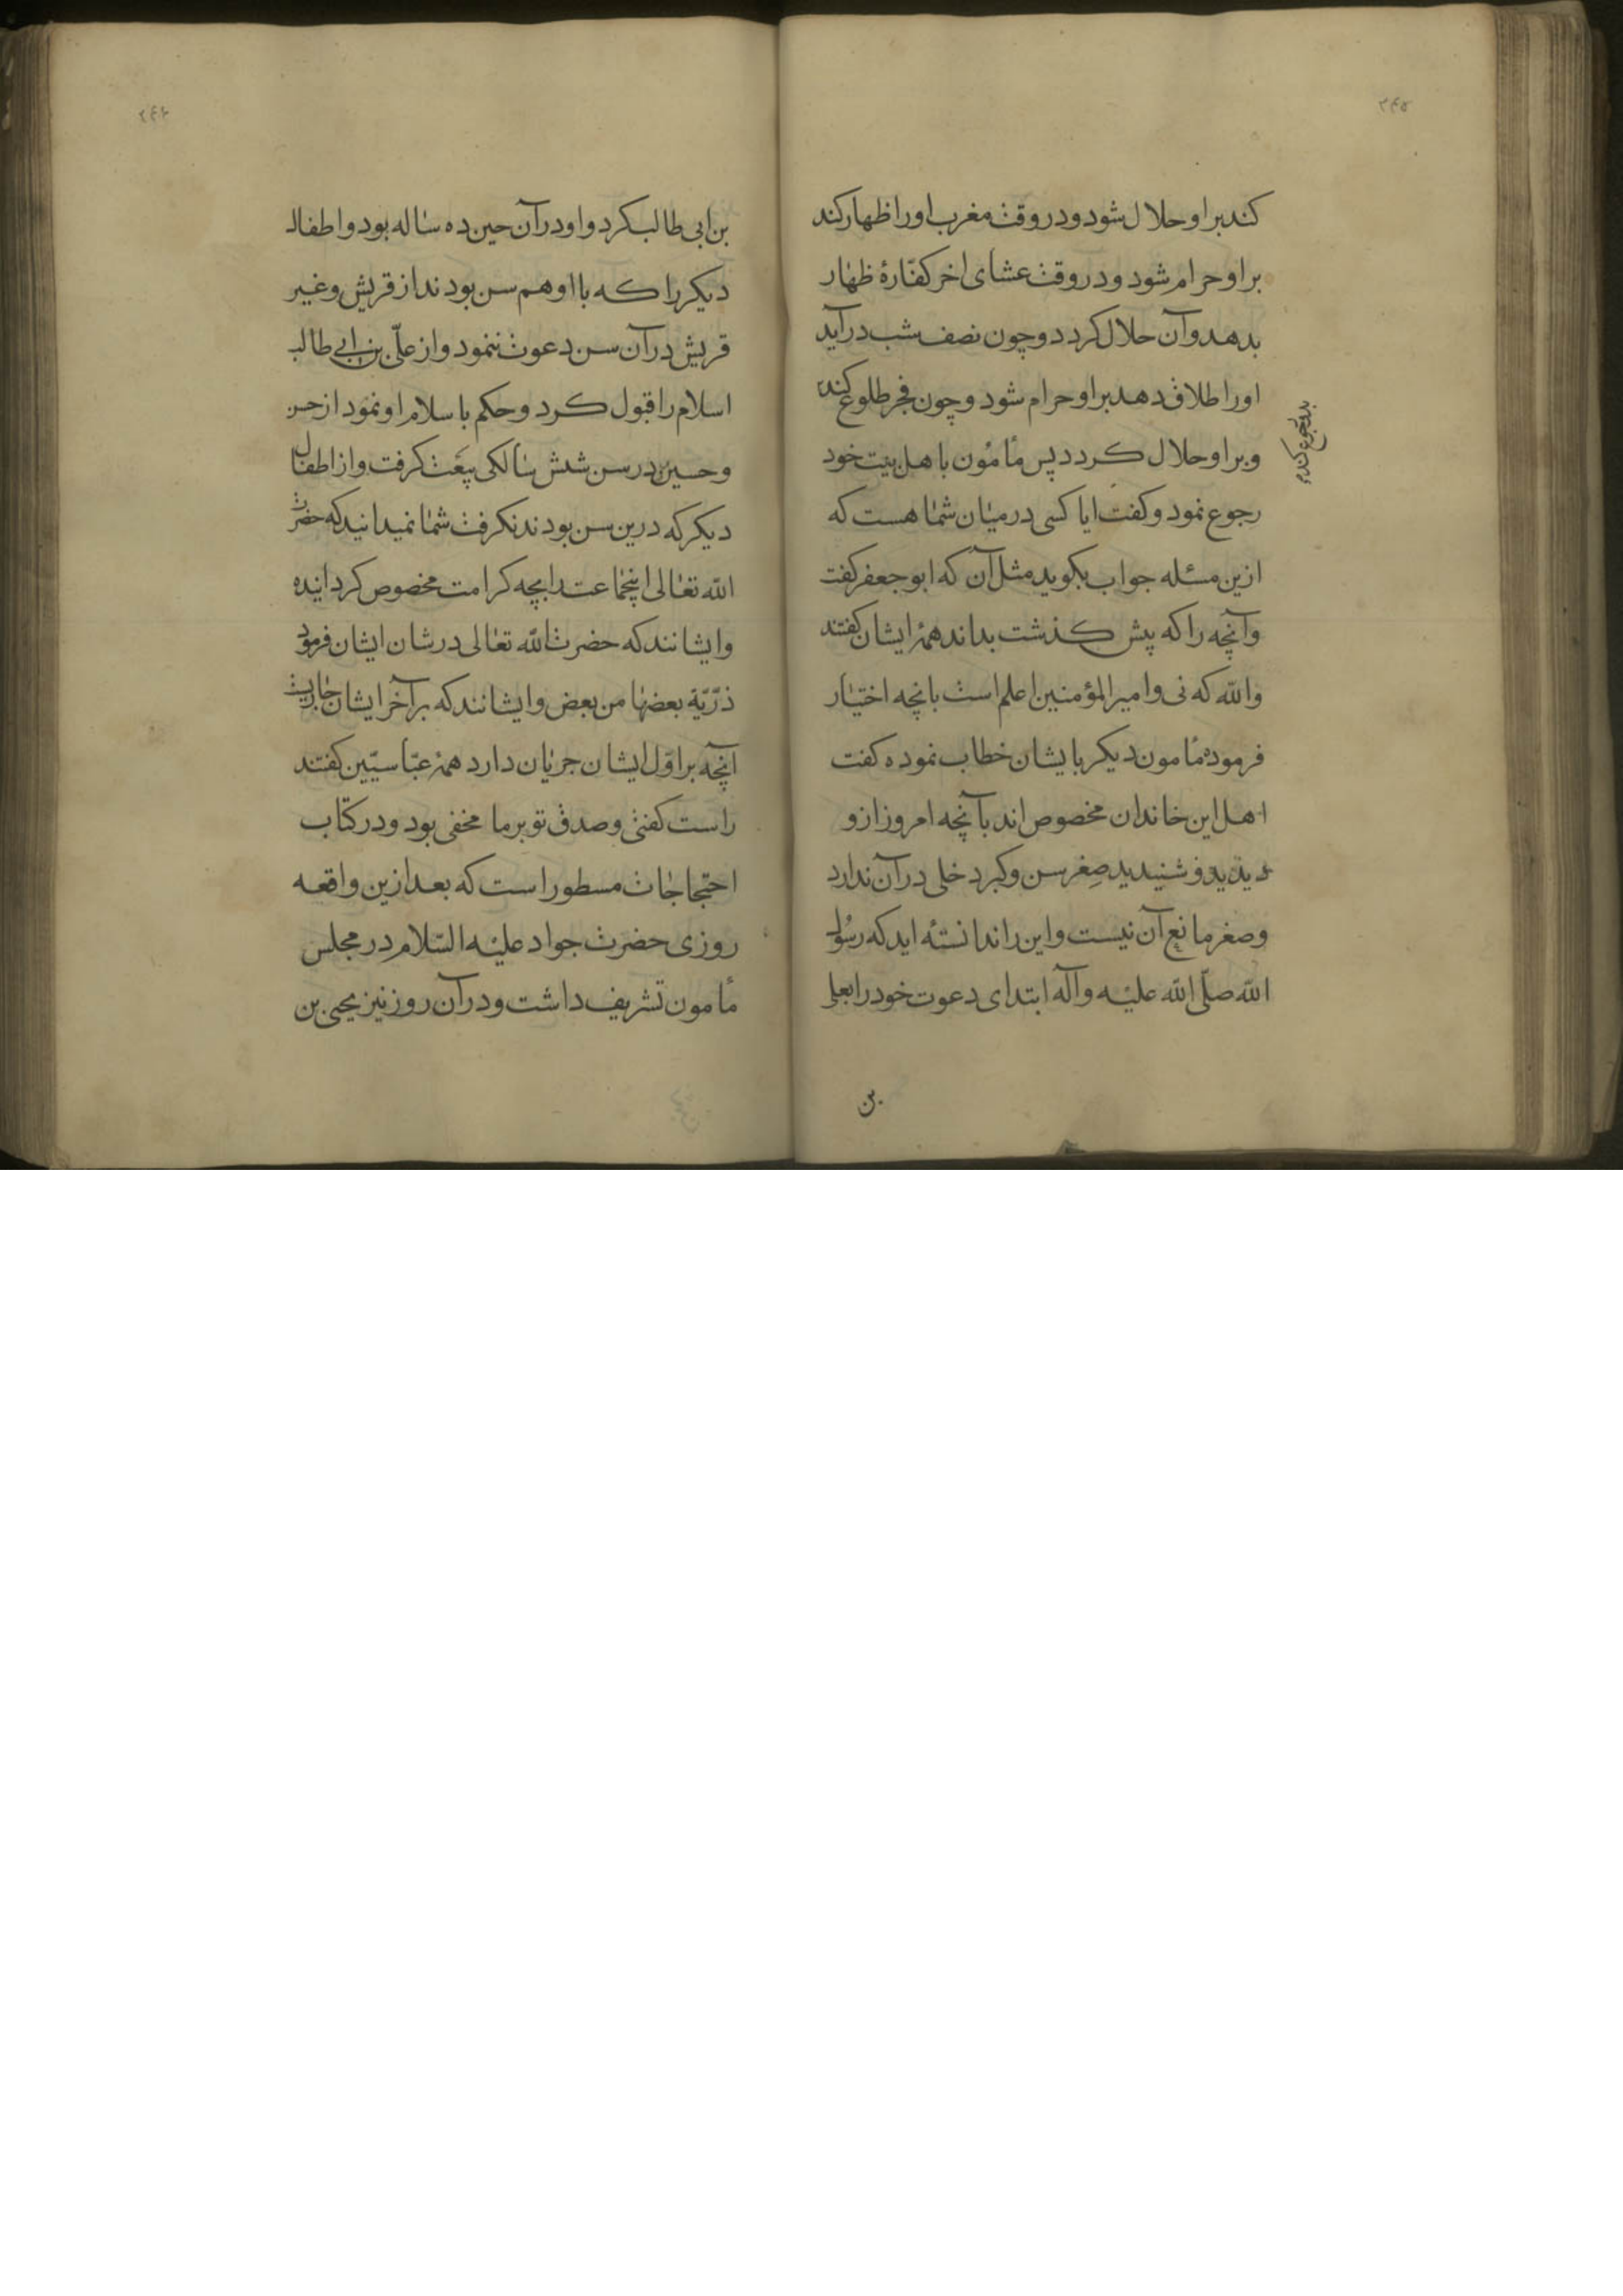 ۲۴۵
کند بر او حلال شود و در وقت مغرب او را ظهار کند
بر او حرام شود و در وقت عشای اخر کفّارهٔ ظهار
بدهد و آن حلال کردد و چون نصف شب درآید
او را طلاق دهد بر او حرام شود و چون فجر طلوع کند
بدو رجوع کند
و بر او حلال کردد پس مأمون با هل بیت خود
رجوع نمود و کفت ایا کسی در میان شما هست که
ازین مسئله جواب بکوید مثل آن که ابو جعفر کفت
و آنچه را که پیش کذشت بداند همهٔ ایشان کفتند
و الله که نی و امیر المؤمنین اعلم است بانچه اختیار
فرموده مأمون دیکر بایشان خطاب نموده کفت
اهل این خاندان مخصوص اند بآنچه امروز ازو
دیدید و شنیدید صِغر سن و کبر دخلی در آن ندارد
و صغر مانع آن نیست و این را ندانستهٔ اید که رسُول
الله صلّی الله علیه و آله ابتدای دعوت خود را بعلی
بن
۲۴۶
بن ابی طالب کرد و او در آن حین ده ساله بود و اطفال
دیکر را که با او هم سن بودند از قریش و غیر
قریش در آن سن دعوت ننمود و از علیّ بن ابی طالب
اسلام را قبول کرد و حکم باسلام او نمود از حسن
و حسین در سن شش سالکی بیَعت کرفت و از اطفال
دیکر که درین سن بودند نکرفت شما نمیدانید که حضرت
الله تعالی اینجماعت را بچه کرامت مخصوص کردانیده
و ایشانند که حضرت الله تعالی در شان ایشان فرمود
ذرّیّة بعضها من بعض و ایشانند که بر آخر ایشان جاریست
آنچه بر اوّل ایشان جریان دارد همهٔ عبّاسیّین کفتند
راست کفتی و صدق تو بر ما مخفی بود و در کتاب
احتجاجات مسطور است که بعد ازین واقعه
روزی حضرت جواد علیه السّلام در مجلس
مأمون تشریف داشت و در آن روز نیز یحیی بن